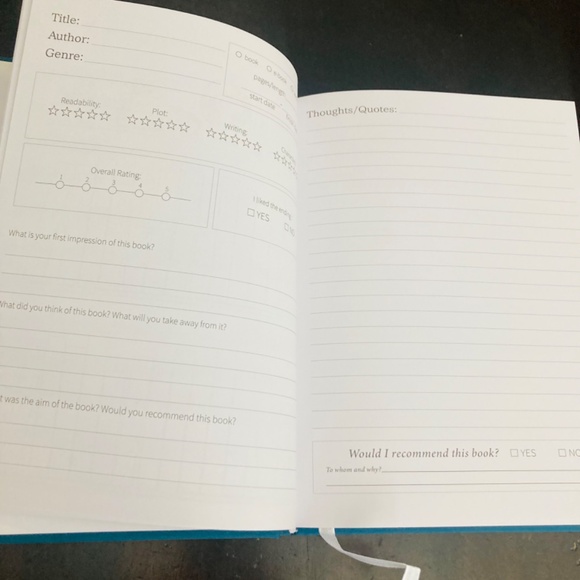 Title:
Author:
Genre:
book
e-book
pages/length
start date
Readability:
Plot:
Writing:
Overall Rating:
1 2 3 4 5
I liked the ending
YES
What is your first impression of this book?
What did you think of this book? What will you take away from it?
was the aim of the book? Would you recommend this book?
Thoughts/Quotes:
Would I recommend this book? YES NO
To whom and why?